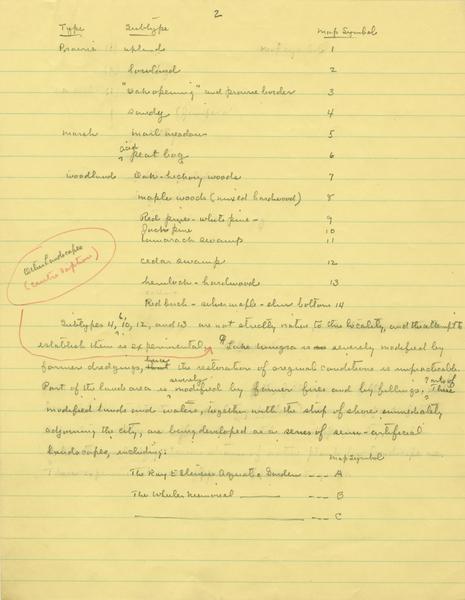 2
Type Subtype Map Symbol
Prairie upland 1
lowland 2
"Oak opening" and prairie border 3
sandy 4
Marsh marl meadow 5
acid peat bog 6
Woodlands Oak-hickory woods 7
maple woods (mixed hardwood) 8
Red pine - white pine - 9
Jack pine 10
tamarack swamp 11
cedar swamp 12
hemlock - hardwood 13
Red birch - silver maple - elm bottom 14
landscapes
(center caption)
Subtypes 4, 6, 10, 12, and 13 are not strictly native to this locality, and the attempt to
establish them is experimental. Lake Wingra is severely modified by
former dredgings, hence the restoration of original conditions is impracticable.
Part of the land area is severely modified by former fires and by fillings. These parts of
modified lands and waters, together with the strip of shore immediately
adjoining the city, are being developed as a series of semi-artificial
landscapes, including:
Map Symbol
The Aquatic Garden --- A
The Memorial --- B
--- C